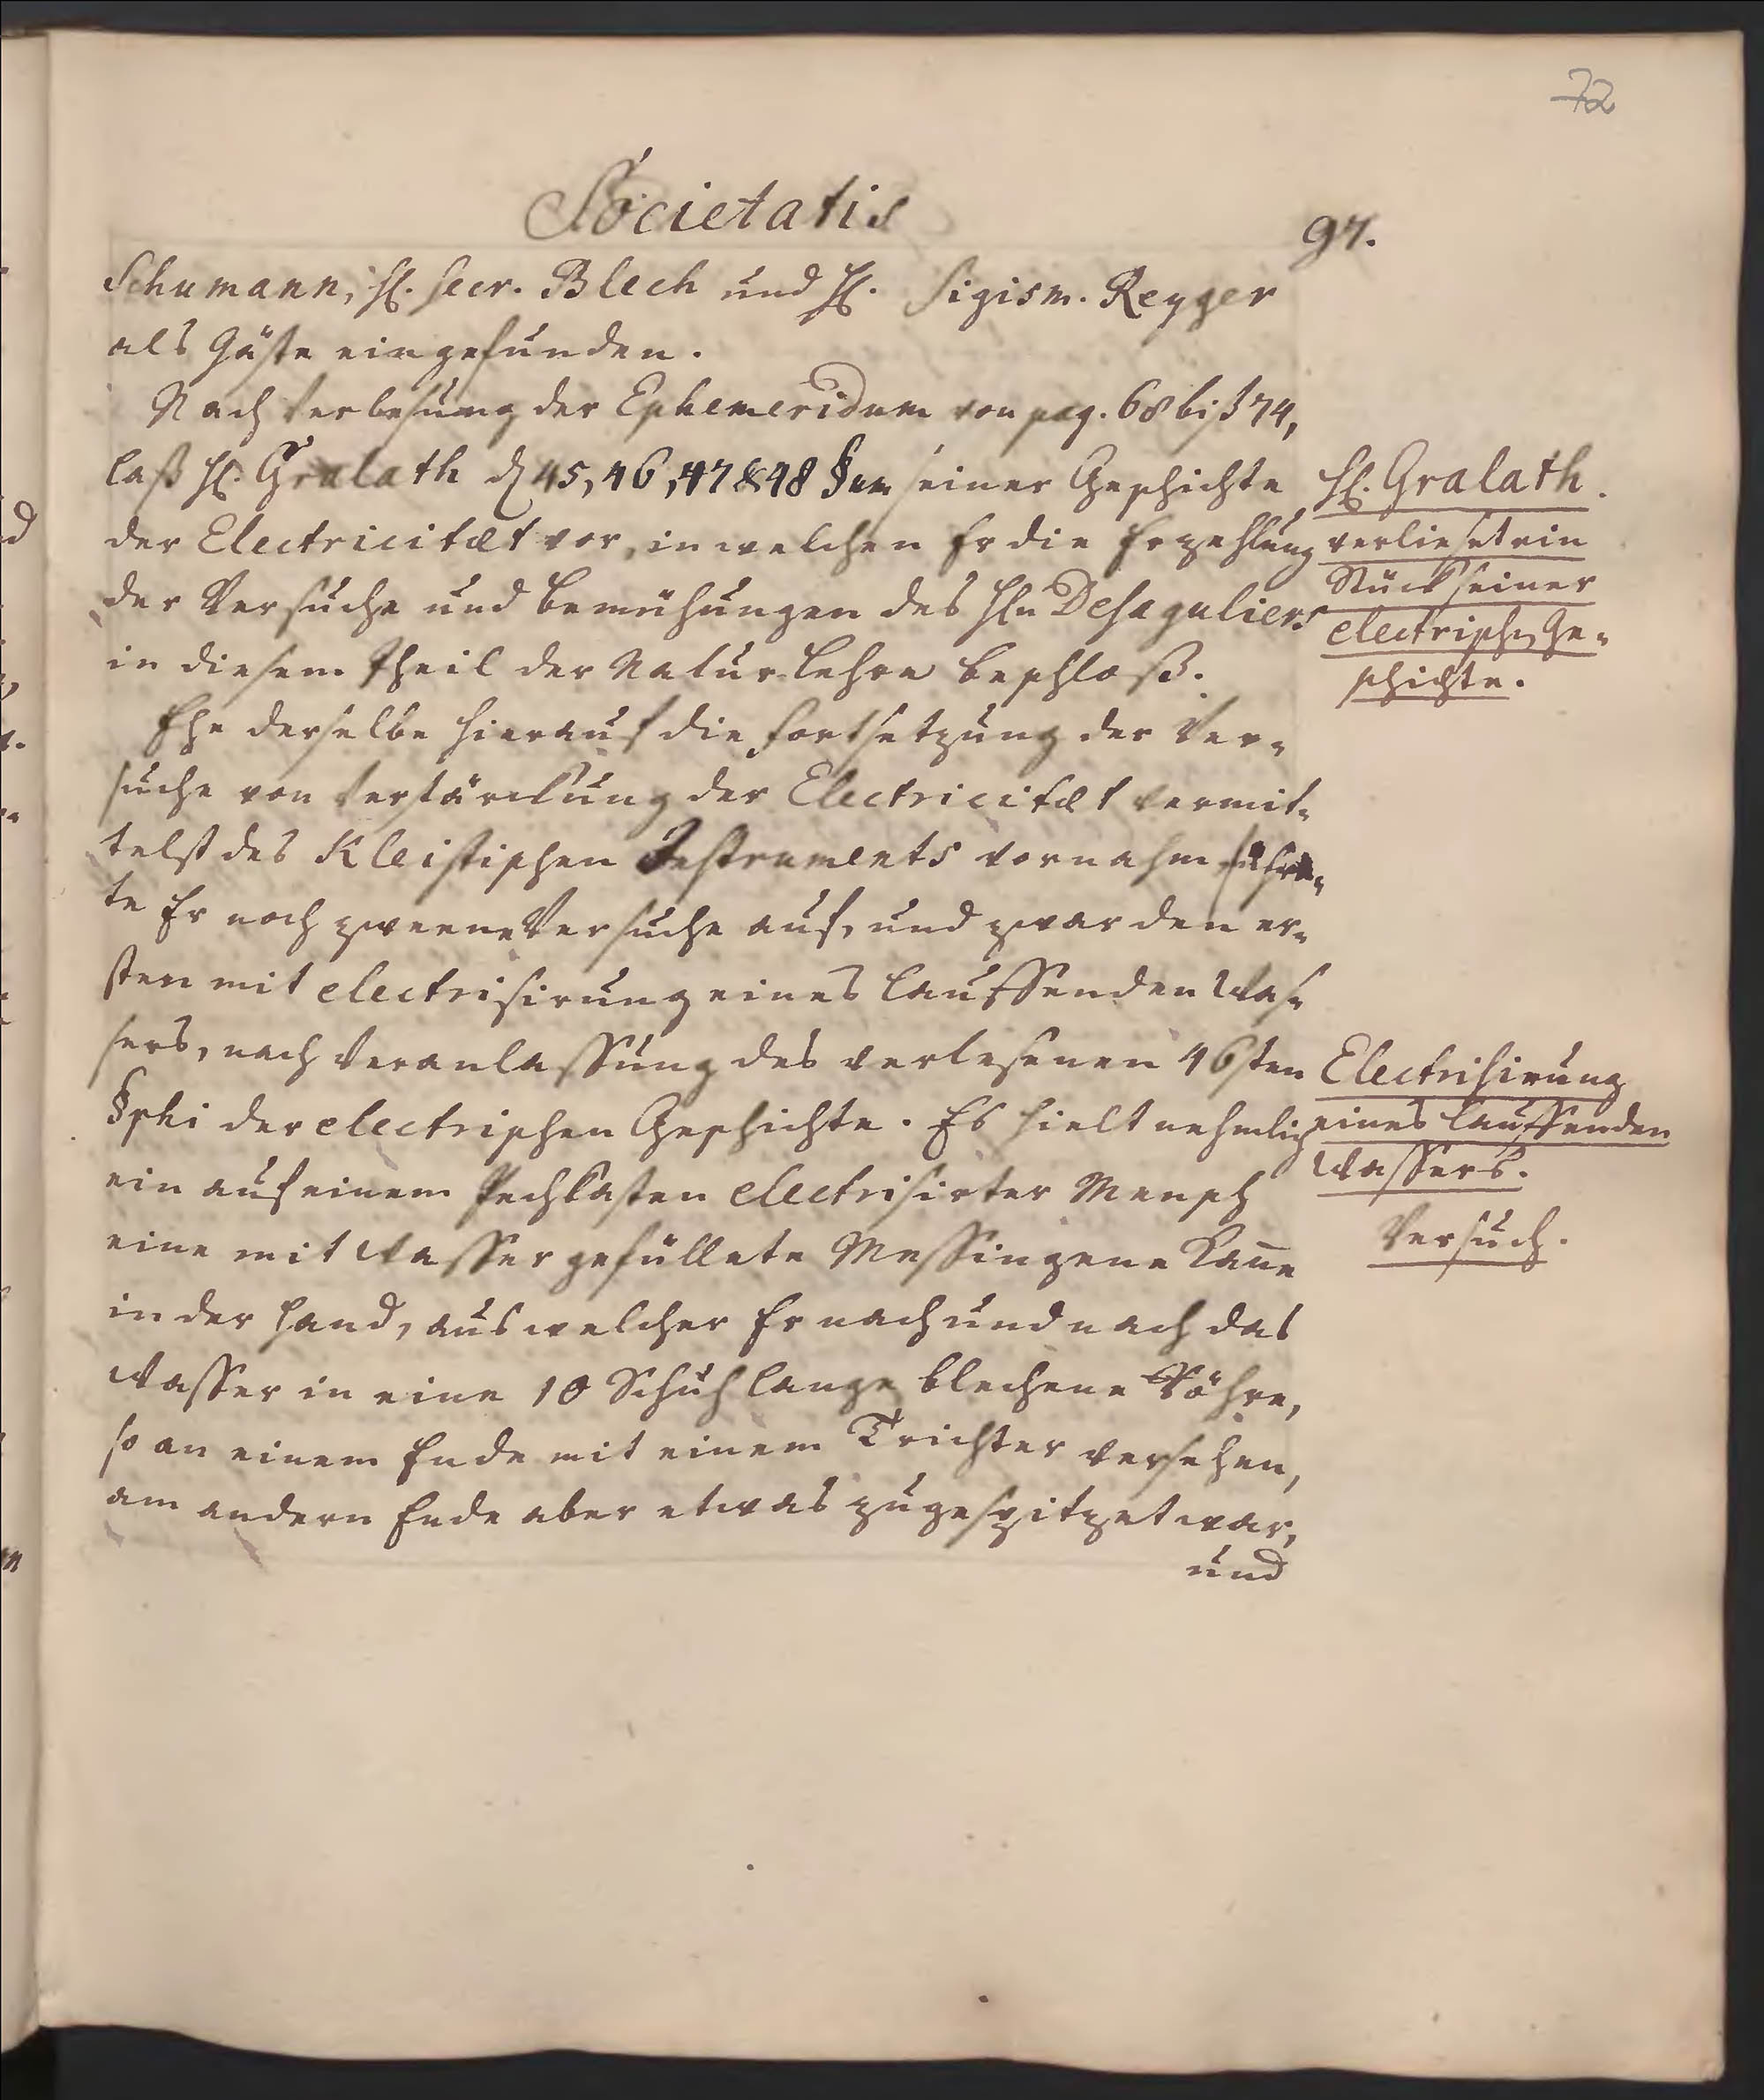 72
Societatis
97.
Schumann, H. Secr. Blech und H. Sigism. Reyger
als Gäste eingefunden.
Nach Verlesung der Ephemeridum von pag. 68 biß 74,
laß H. Gralath d 45, 46, 47 & 48 §um seiner Geschichte
der Electricitæt vor, in welchen Er die Erzehlung
der Versuche und Bemühungen des Hn Desaguliers
in diesem Theil der Natur-Lehre beschloß.
H. Gralath
verlieset ein
Stück seiner
electrischn Ge-
schichte.
Ehe derselbe hierauf die Fortsetzung der Ver-
suche von Verstärckung der Electricitæt vermit-
telst des Kleistischen Instruments vornahm, führe-
te Er noch zweene Versuche auf, und zwar den er-
sten mit electrisirung eines lauffenden Was-
sers, nach Veranlassung des verlesenen 46sten
§phi der electrischen Geschichte. Es hielt nehmlich
ein auf einem Pechkasten electrisirter Mensch
eine mit Wasser gefüllete Messingene Kanne
in der Hand, aus welcher Er nach und nach das
Wasser in eine 10 Schuh lange blechene Röhre,
so an einem Ende mit einem Trichter versehen,
am andern Ende aber etwas zugespitzet war,
und
Electrisirung
eines lauffenden
Wassers.
Versuch.